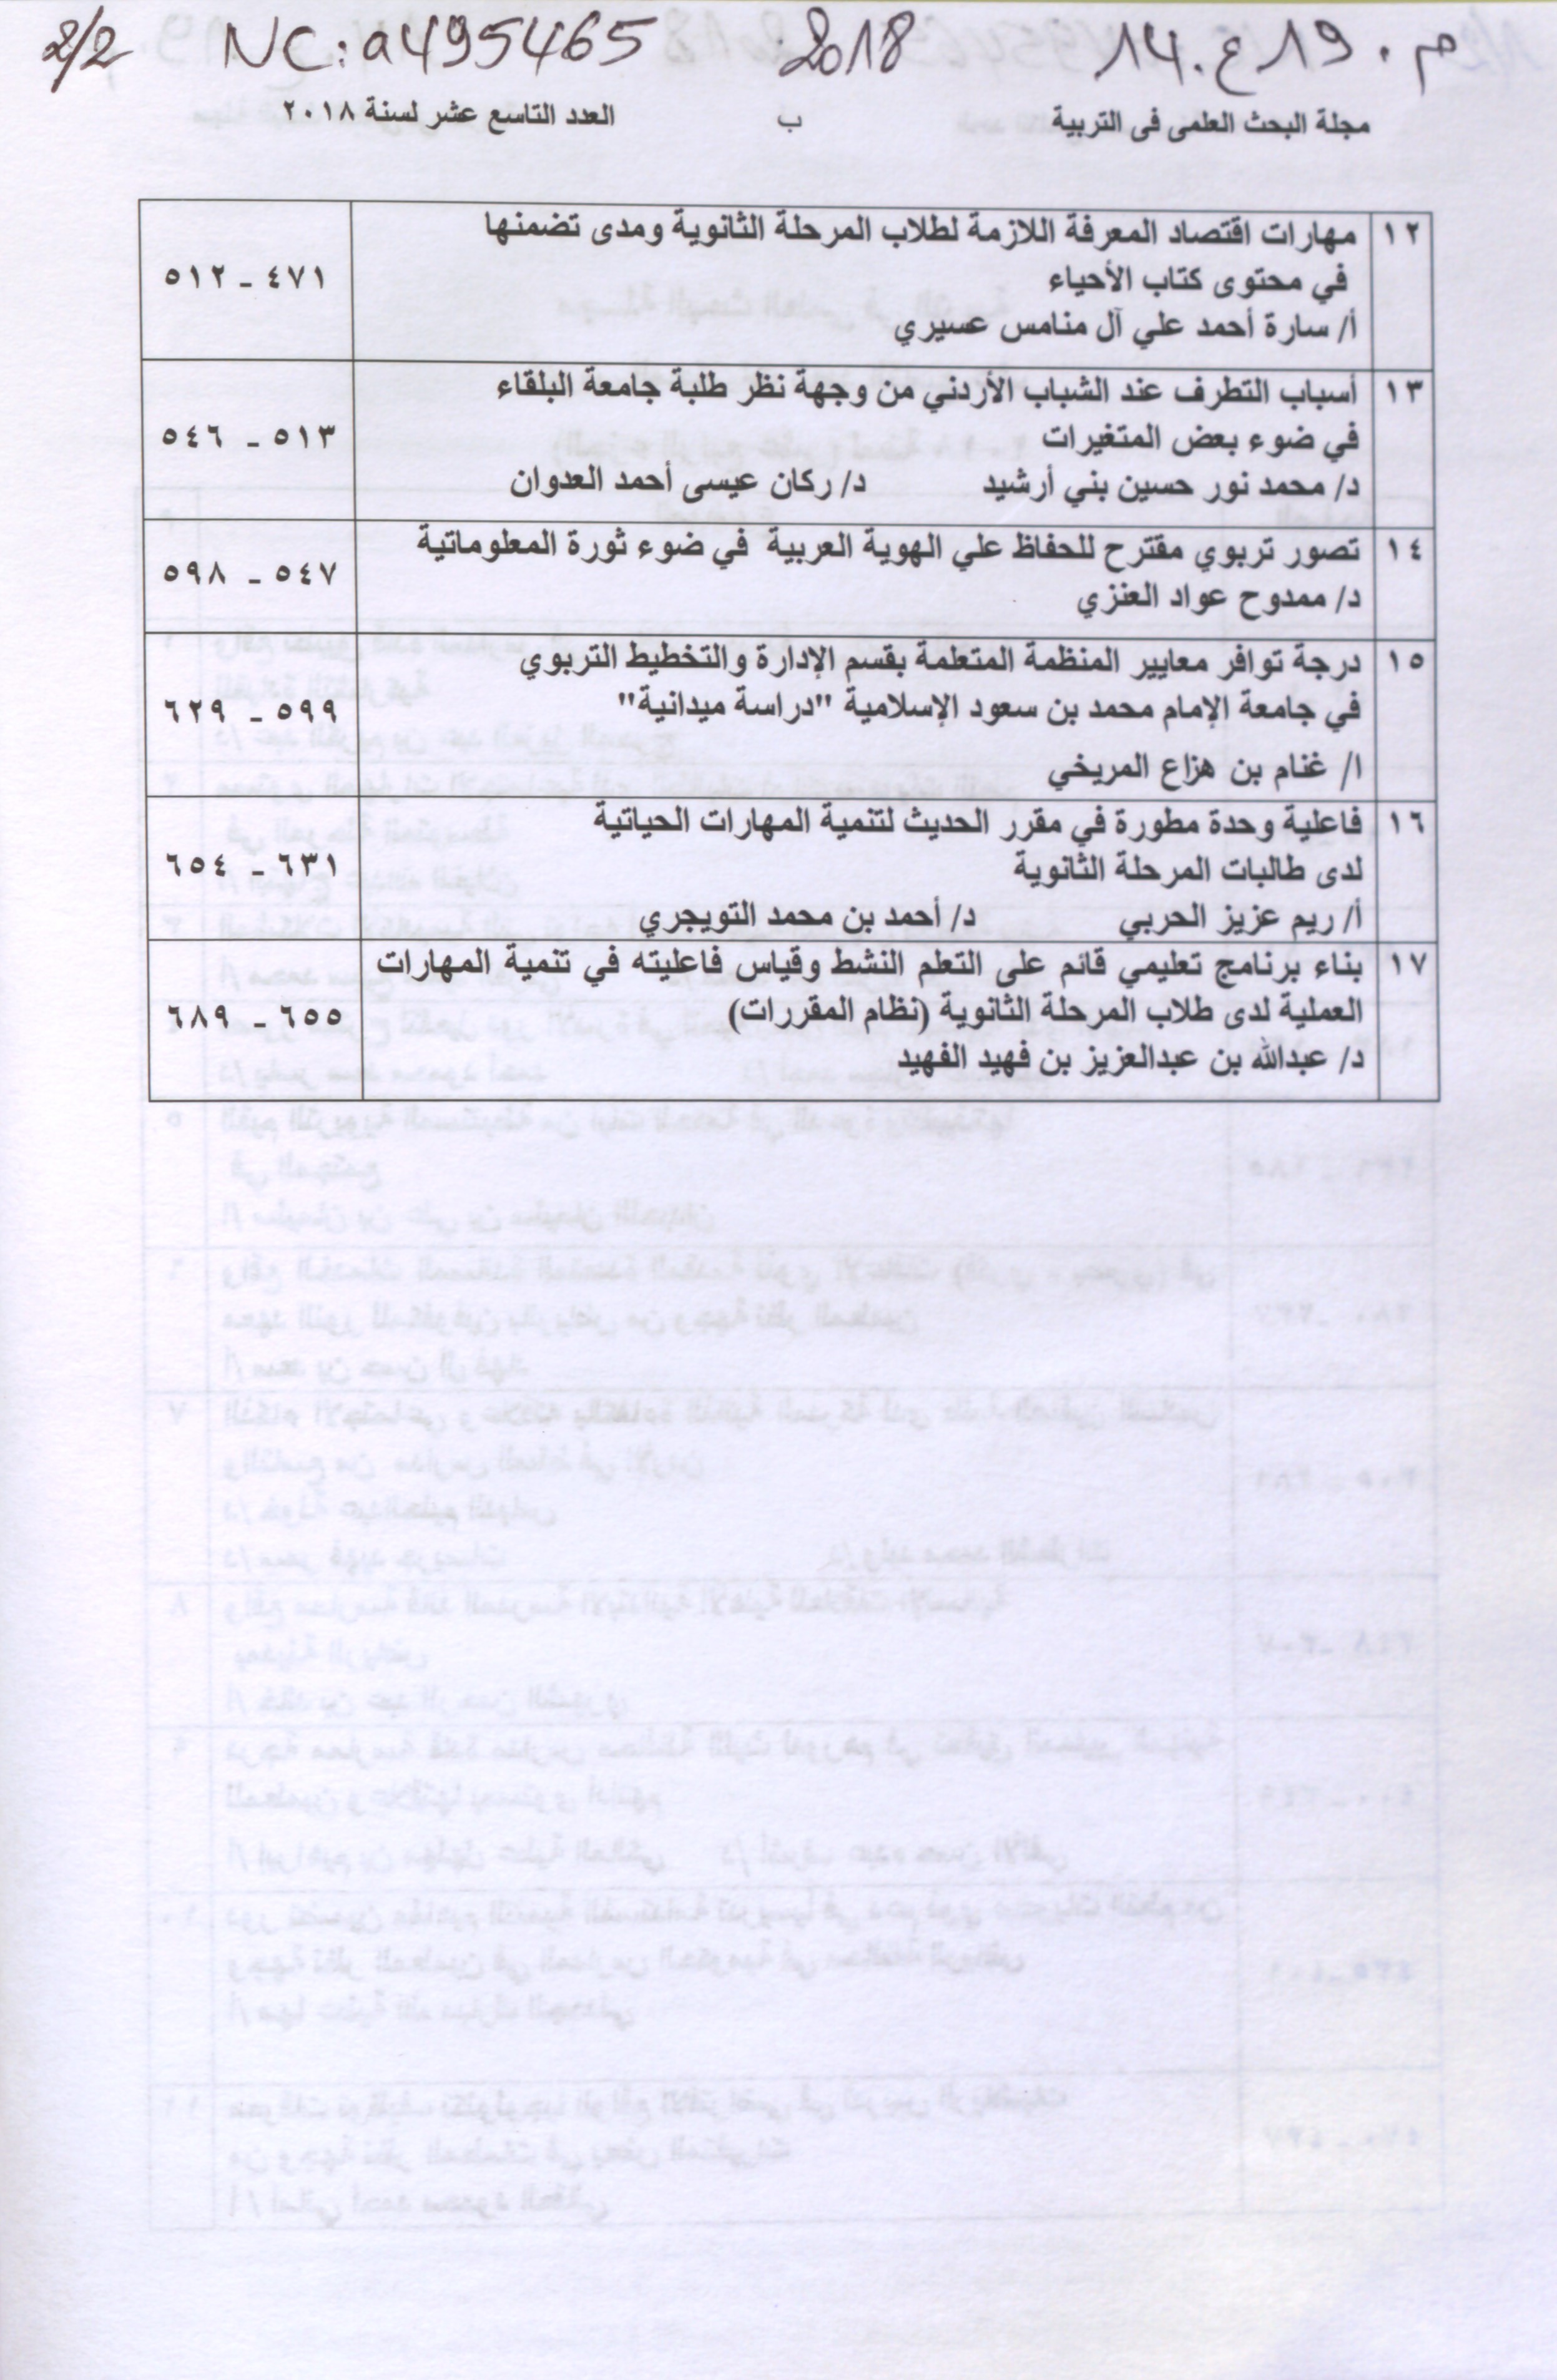 م. 19 ع. 14 2018 NC: a495465 2/2
مجلة البحث العلمى فى التربية ب العدد التاسع عشر لسنة ٢٠١٨
١٢ مهارات اقتصاد المعرفة اللازمة لطلاب المرحلة الثانوية ومدى تضمنها
في محتوى كتاب الأحياء ٤٧١ - ٥١٢
أ/ سارة أحمد علي آل منامس عسيري
١٣ أسباب التطرف عند الشباب الأردني من وجهة نظر طلبة جامعة البلقاء
في ضوء بعض المتغيرات ٥١٣ - ٥٤٦
د/ محمد نور حسين بني أرشيد د/ ركان عيسى أحمد العدوان
١٤ تصور تربوي مقترح للحفاظ علي الهوية العربية في ضوء ثورة المعلوماتية ٥٤٧ - ٥٩٨
د/ ممدوح عواد العنزي
١٥ درجة توافر معايير المنظمة المتعلمة بقسم الإدارة والتخطيط التربوي
في جامعة الإمام محمد بن سعود الإسلامية "دراسة ميدانية" ٥٩٩ - ٦٢٩
ا/ غنام بن هزاع المريخي
١٦ فاعلية وحدة مطورة في مقرر الحديث لتنمية المهارات الحياتية
لدى طالبات المرحلة الثانوية ٦٣١ - ٦٥٤
أ/ ريم عزيز الحربي د/ أحمد بن محمد التويجري
١٧ بناء برنامج تعليمي قائم على التعلم النشط وقياس فاعليته في تنمية المهارات
العملية لدى طلاب المرحلة الثانوية (نظام المقررات) ٦٥٥ - ٦٨٩
د/ عبدالله بن عبدالعزيز بن فهيد الفهيد